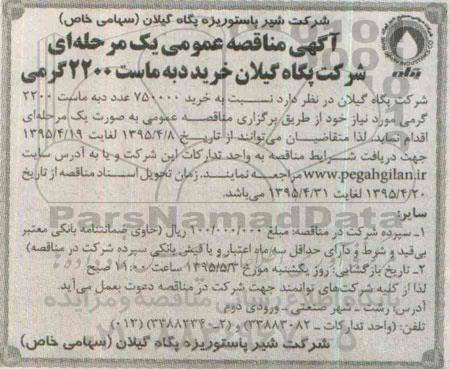 شرکت شیر پاستوریزه پگاه گیلان (سهامی خاص)
آگهی مناقصه عمومی یک مرحله‌ای
شرکت پگاه گیلان خرید دبه ماست ۲۲۰۰ گرمی
پگاه
شرکت پگاه گیلان در نظر دارد نسبت به خرید ۷۵۰۰۰۰ عدد دبه ماست ۲۲۰۰
گرمی مورد نیاز خود از طریق برگزاری مناقصه عمومی به صورت یک مرحله‌ای
اقدام نماید. لذا متقاضیان می‌توانند از تاریخ ۱۳۹۵/۴/۸ لغایت ۱۳۹۵/۴/۱۹
جهت دریافت شرایط مناقصه به واحد تدارکات این شرکت و یا به آدرس سایت
www.pegahgilan.ir مراجعه نمایند. زمان تحویل اسناد مناقصه از تاریخ
۱۳۹۵/۴/۲۰ لغایت ۱۳۹۵/۴/۳۱ می‌باشد.
سایر:
۱- سپرده شرکت در مناقصه: مبلغ ۲۰۰/۰۰۰/۰۰۰ ریال (حاوی ضمانتنامه بانکی معتبر
بی‌قید و شرط و دارای حداقل سه ماه اعتبار و یا فیش بانکی سپرده شرکت در مناقصه)
۲- تاریخ بازگشایی: روز یکشنبه مورخ ۱۳۹۵/۵/۳ ساعت ۱۱:۰۰ صبح
لذا از کلیه شرکت‌های توانمند جهت شرکت در مناقصه دعوت بعمل می‌آید.
آدرس: رشت - شهر صنعتی - ورودی دوم
تلفن: (واحد تدارکات - ۳۳۸۸۳۰۸۲) و (۲-۳۳۸۸۲۳۴۰) (۰۱۳)
شرکت شیر پاستوریزه پگاه گیلان (سهامی خاص)
ParsNamadData
پایگاه اطلاع رسانی مناقصه و مزایده